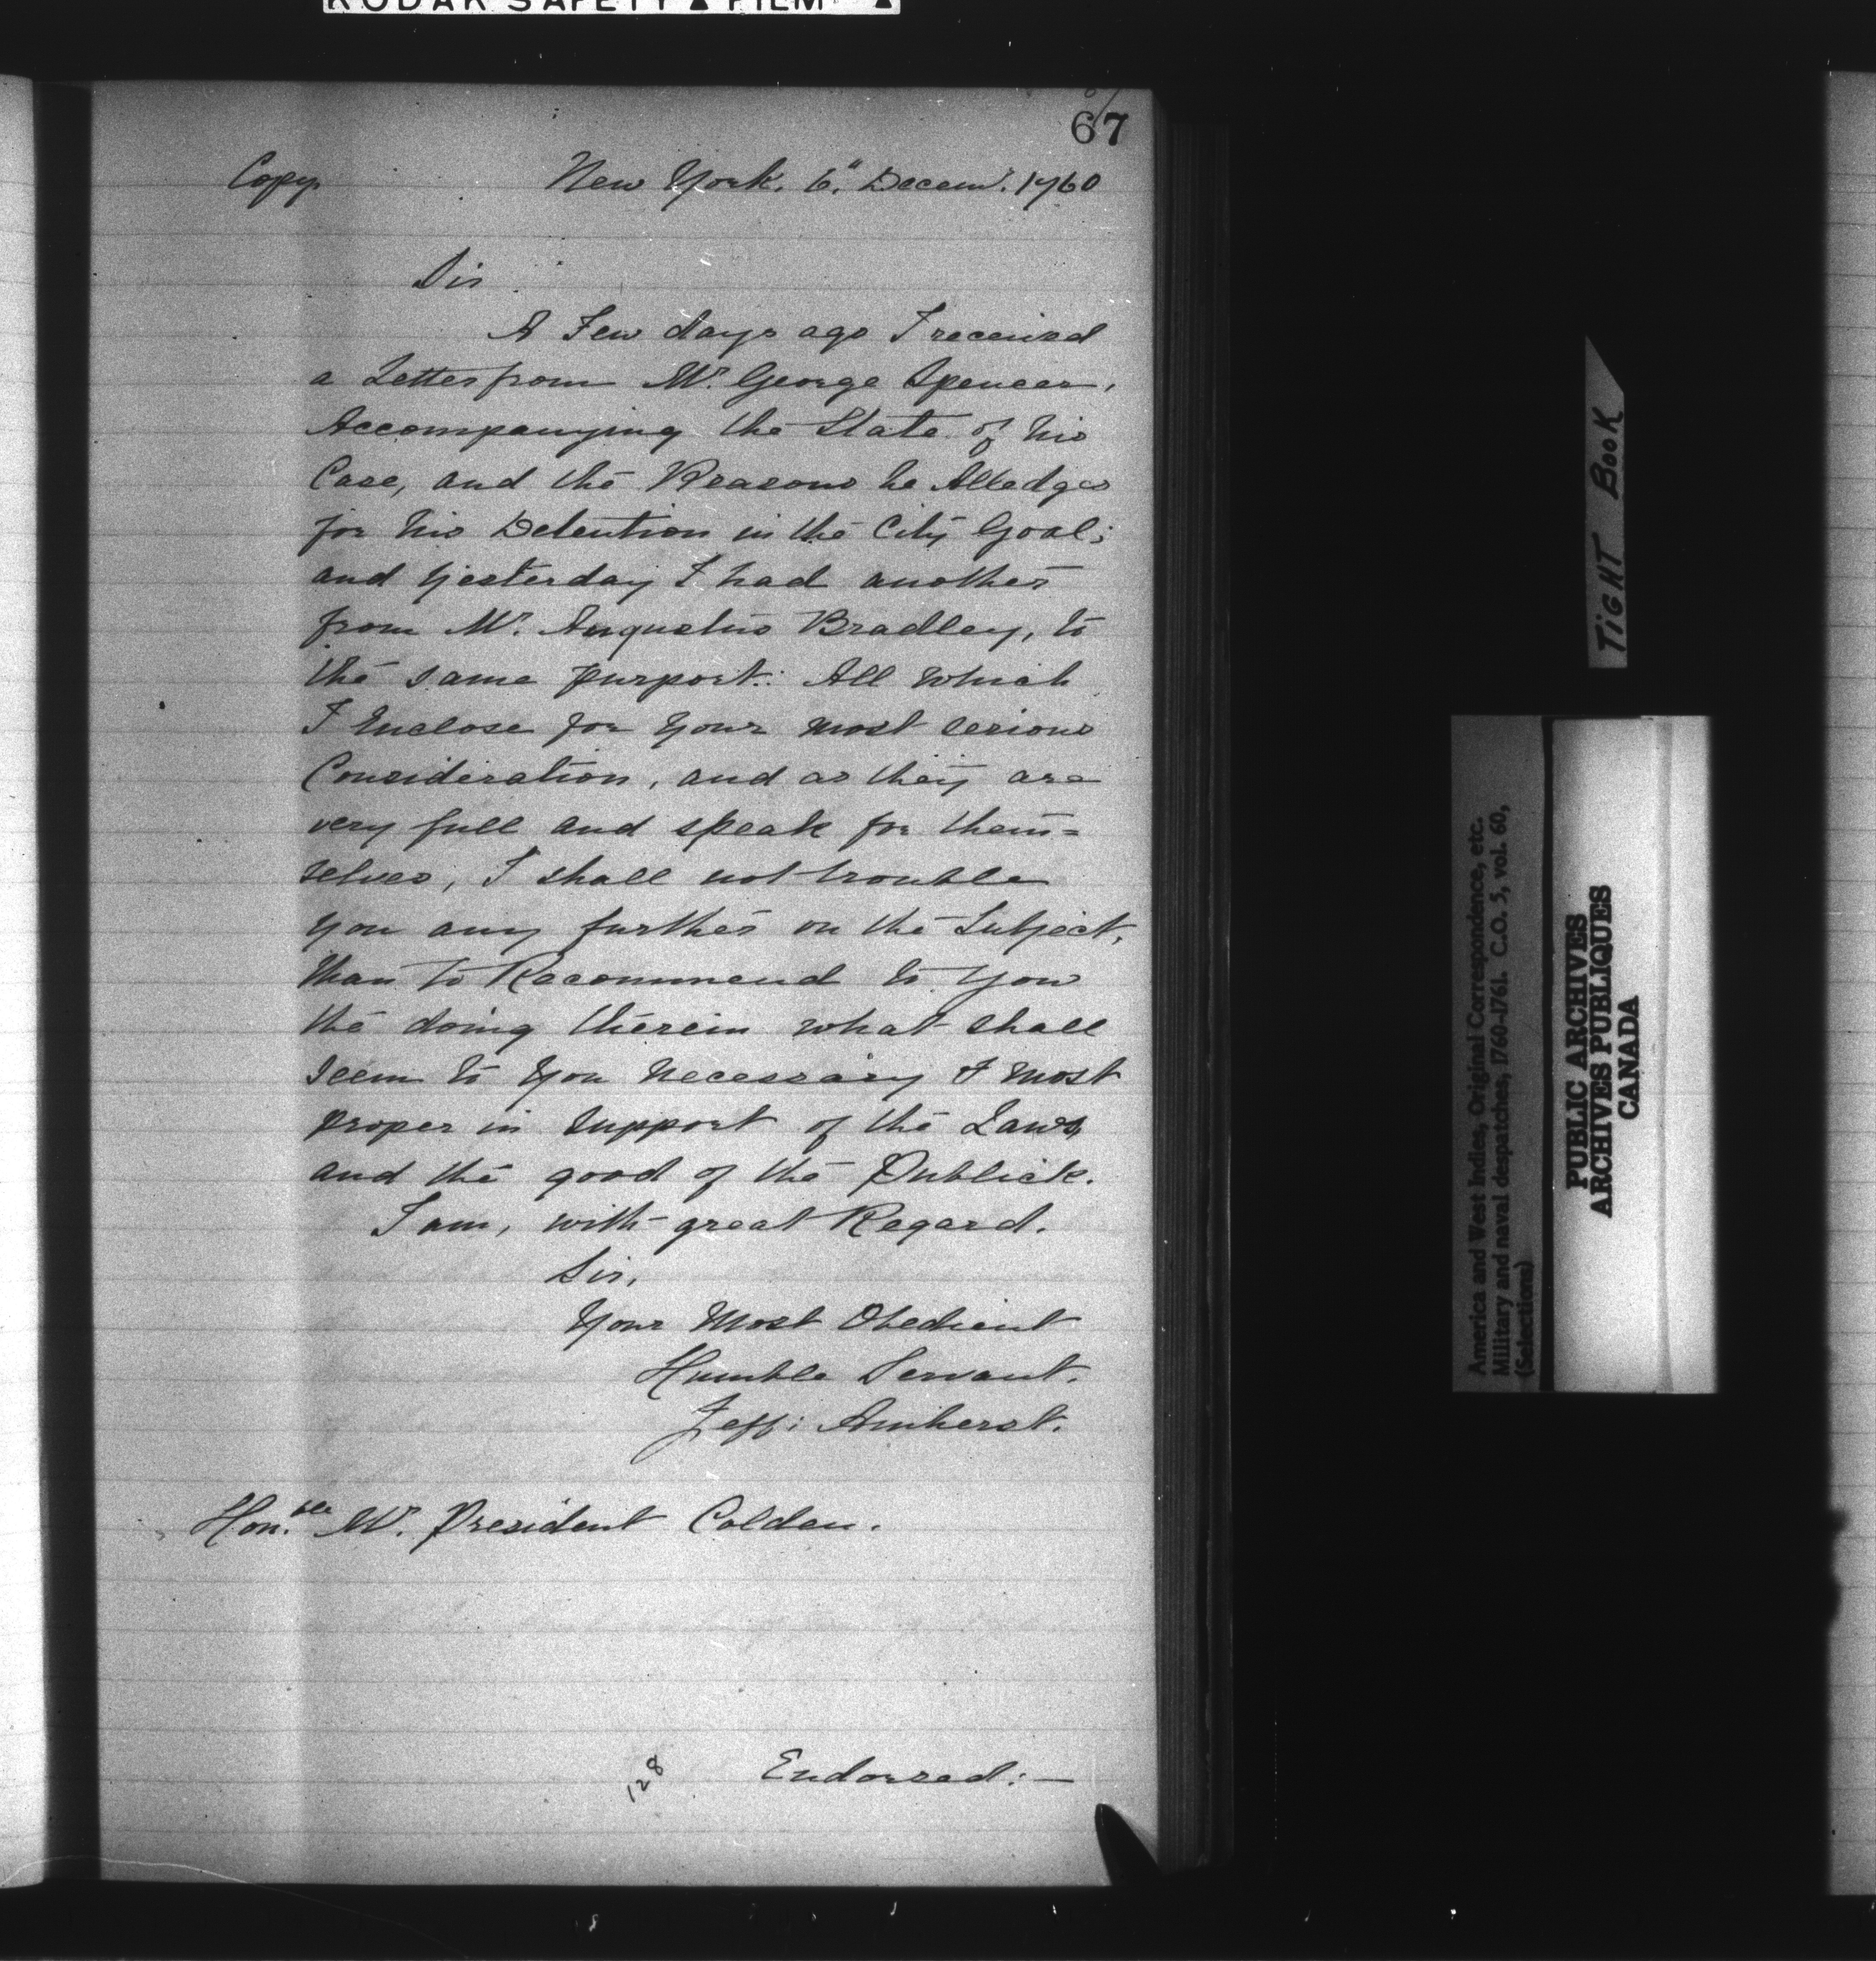 KODAK SAFETY ▲ FILM ▲
67
Copy. New York. 6." Decem.r 1760
Sir
A Few days ago I received
a Letter from Mr. George Spencer,
Accompanying the State of his
Case, and the Reasons he Alledges
for his Detention in the City Goal;
and yesterday I had another
from Mr. Augustus Bradley, to
the same purport: All which
I Enclose for Your most serious
Consideration, and as they are
very full and speak for them=
selves, I shall not trouble
you any further on the Subject,
than to Recommend to You
the doing therein what shall
seem to You Necessary & most
proper in Support of the Laws,
and the good of the Publick.
I am, with great Regard.
Sir,
Your Most Obedient
Humble Servant.
Jeff: Amherst.
Hon.ble Mr. President Colden.
128 Endorsed:—
TIGHT BOOK
America and West Indies, Original Correspondence, etc.
Military and naval despatches, 1760-1761. C.O. 5, vol. 60,
(Selections)
PUBLIC ARCHIVES
ARCHIVES PUBLIQUES
CANADA